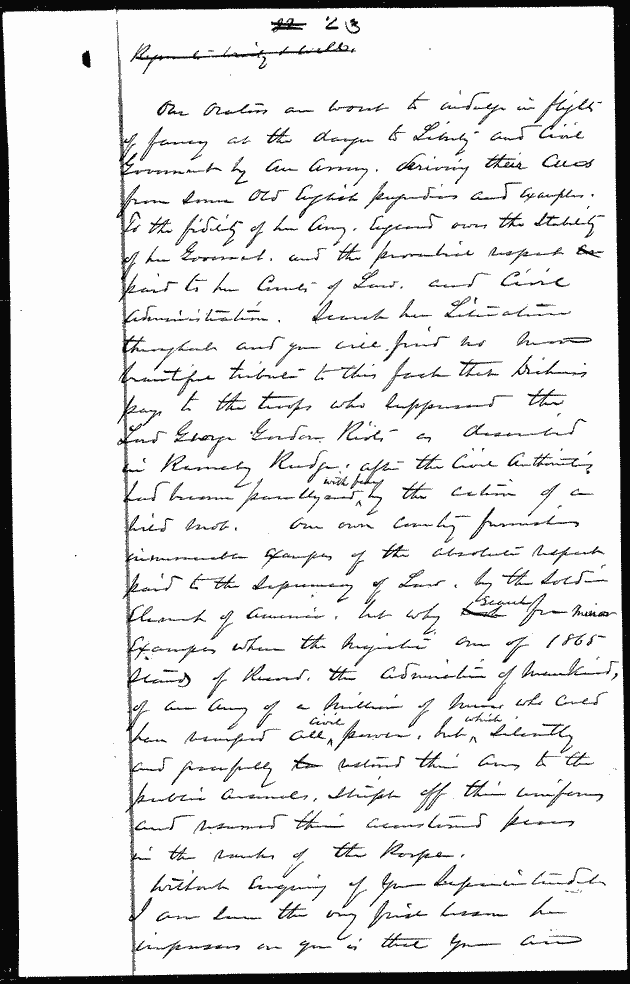 23
Our Orators are wont to indulge in flights
of fancy at the danger to Liberty and Civil
Government by an Army. deriving their Cues
from some Old English prejudices and examples.
To the fidelity of her Army. England owes the Stability
of her Government. and the proverbial respect
paid to her Courts of Law. and Civil
Administration. Search her Literature
throughout and you will find no more
beautiful tribute to this fact than Dickens
pays to the troops who suppressed the
Lord George Gordon Riots as described
in Barnaby Rudge: after the Civil Authorities
had become with fear by the action of a
mob. Our own Country furnishes
innumerable Examples of the absolute respect
paid to the Supremacy of Law. by the Soldier
Element of America. but why search for minor
Examples when the Majestic one of 1865
Stands of Record. the admiration of Mankind,
of an Army of a Million of Men who could
have usurped all civil power. but which silently
and gracefully returned their Arms to the
public arsenals. Stript off their uniforms
and resumed their accustomed places
in the ranks of the People.
Without Enquiring of Your Superintendent
I am sure the very first lesson he
impresses on you is that your